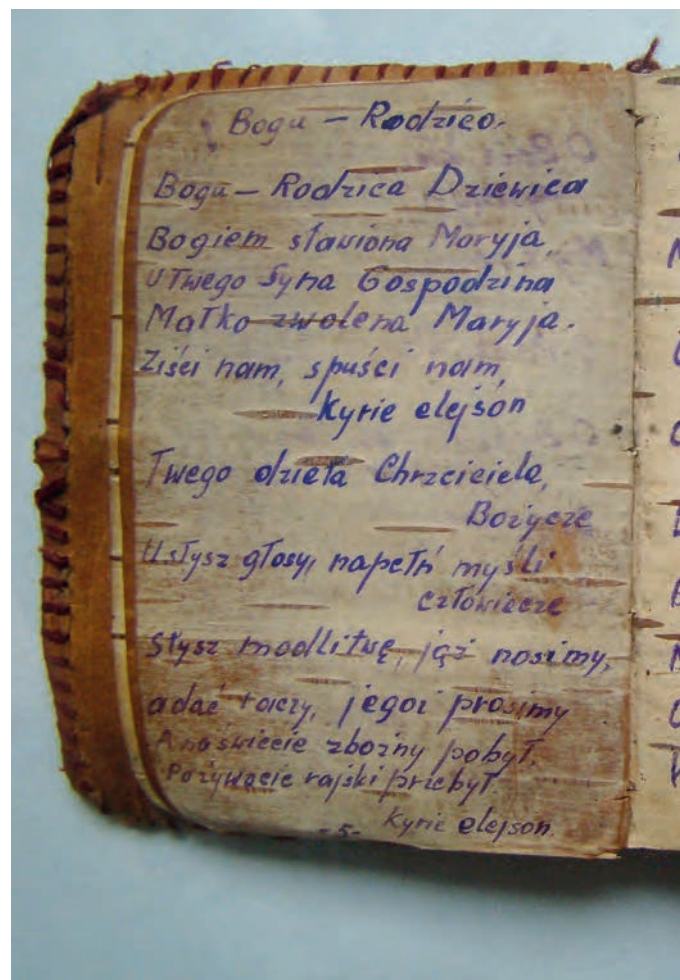 Bogu - Rodzico.
Bogu - Rodzica Dziewica
Bogiem sławiona Maryja,
U Twego Syna Gospodzina
Matko zwolena Maryja.
Ziści nam, spuści nam,
Kyrie elejson
Twego dzieła Chrzciciela,
Bożycze
Usłysz głosy, napełń myśli
człowiecze
Słysz modlitwę, jąż nosimy,
adać raczy, jegoż prosimy
A na świecie zbożny pobyt,
Po żywocie rajski przebyt.
Kyrie elejson.
- 5 -